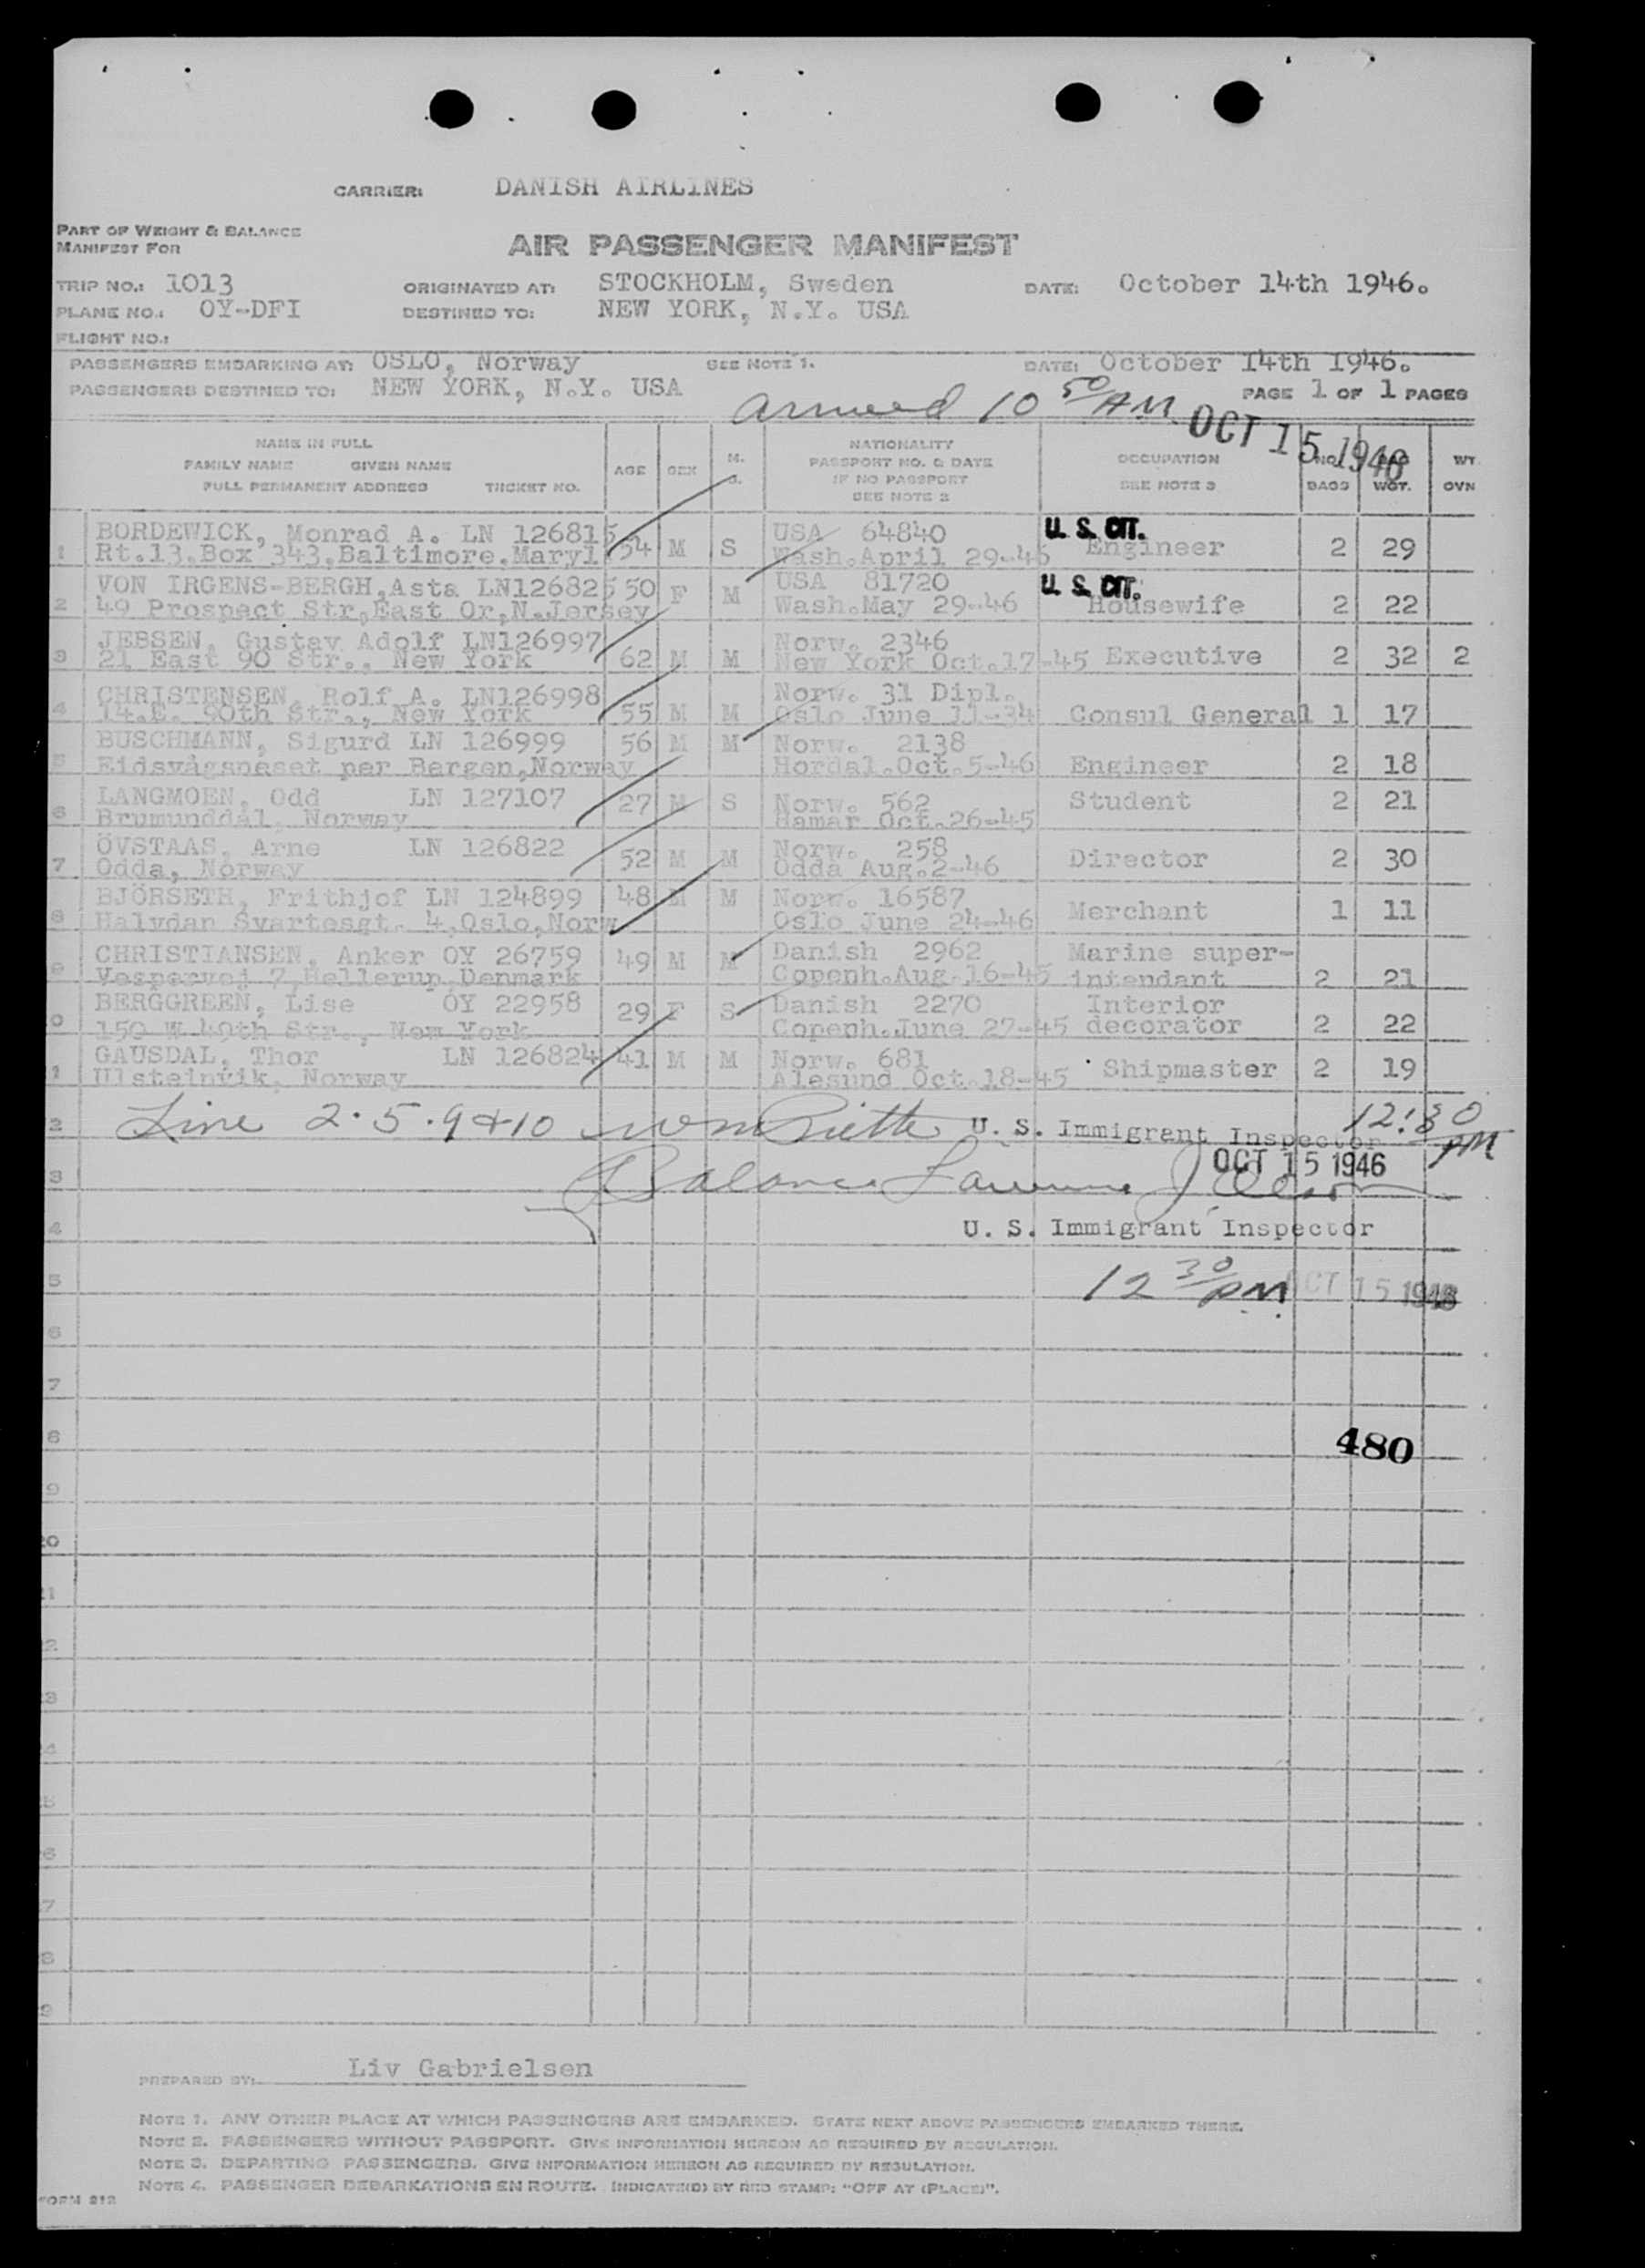 CARRIER: DANISH AIRLINES
PART OF WEIGHT & BALANCE
MANIFEST FOR
AIR PASSENGER MANIFEST
TRIP NO.: 1013 ORIGINATED AT: STOCKHOLM, Sweden DATE: October 14th 1946.
PLANE NO.: OY-DFI DESTINED TO: NEW YORK, N.Y. USA
FLIGHT NO.:
PASSENGERS EMBARKING AT: OSLO, Norway SEE NOTE 1. DATE: October 14th 1946.
PASSENGERS DESTINED TO: NEW YORK, N.Y. USA PAGE 1 OF 1 PAGES
arrived 10 50/AM OCT 15 1946
NAME IN FULL
FAMILY NAME GIVEN NAME
FULL PERMANENT ADDRESS TICKET NO. AGE SEX M. S. NATIONALITY
PASSPORT NO. & DATE
IF NO PASSPORT
SEE NOTE 2 OCCUPATION
SEE NOTE 3 NO.
BAGS WGT. WT.
OVN
1 BORDEWICK, Monrad A. LN 126815 54 M S USA 64840 U. S. CIT. Engineer 2 29
Rt.13.Box 343,Baltimore,Maryl Wash.April 29-46
2 VON IRGENS-BERGH,Asta LN126825 50 F M USA 81720 U. S. CIT. Housewife 2 22
49 Prospect Str,East Or,N.Jersey Wash.May 29-46
3 JEBSEN, Gustav Adolf LN126997 62 M M Norw. 2346 Executive 2 32 2
21 East 90 Str., New York New York Oct.17-45
4 CHRISTENSEN, Rolf A. LN126998 55 M M Norw. 31 Dipl. Consul General 1 17
14.E. 90th Str., New York Oslo June 11-34
5 BUSCHMANN, Sigurd LN 126999 56 M M Norw. 2138 Engineer 2 18
Eidsvågsneset per Bergen,Norway Hordal.Oct.5-46
6 LANGMOEN, Odd LN 127107 27 M S Norw. 562 Student 2 21
Brumunddal, Norway Hamar Oct.26-45
7 ÖVSTAAS, Arne LN 126822 52 M M Norw. 258 Director 2 30
Odda, Norway Odda Aug.2-46
8 BJÖRSETH, Frithjof LN 124899 48 M M Norw. 16587 Merchant 1 11
Halvdan Svartesgt. 4,Oslo,Norw Oslo June 24-46
9 CHRISTIANSEN, Anker OY 26759 49 M M Danish 2962 Marine super-
Vespervej 7,Hellerup,Denmark Copenh.Aug.16-45 intendant 2 21
0 BERGGREEN, Lise OY 22958 29 F S Danish 2270 Interior
150 W 49th Str., New York Copenh.June 27-45 decorator 2 22
1 GAUSDAL, Thor LN 126824 41 M M Norw. 681 Shipmaster 2 19
Ulsteinvik, Norway Alesund Oct.18-45
2 Line 2.5.9&10 U. S. Immigrant Inspector 12:30 PM
3 Balance Lawrence OCT 15 1946
4 U. S. Immigrant Inspector
5 12 30/PM OCT 15 1946
6
7
8 480
9
20
1
2
3
4
5
6
7
8
9
PREPARED BY: Liv Gabrielsen
NOTE 1. ANY OTHER PLACE AT WHICH PASSENGERS ARE EMBARKED. STATE NEXT ABOVE PASSENGERS EMBARKED THERE.
NOTE 2. PASSENGERS WITHOUT PASSPORT. GIVE INFORMATION HEREON AS REQUIRED BY REGULATION.
NOTE 3. DEPARTING PASSENGERS. GIVE INFORMATION HEREON AS REQUIRED BY REGULATION.
NOTE 4. PASSENGER DEBARKATIONS EN ROUTE. INDICATE(D) BY RED STAMP: "OFF AT (PLACE)".
FORM 212